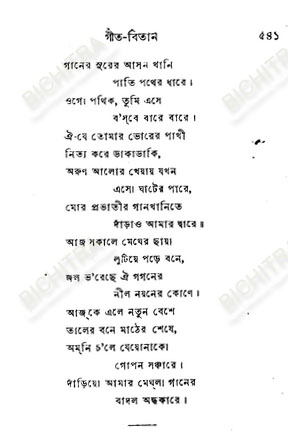 গীত-বিতান ৫৪১
গানের সুরের আসন খানি
পাতি পথের ধারে।
ওগো পথিক, তুমি এসে
ব'স্‌বে বারে বারে।
ঐ-যে তোমার ভোরের পাখী
নিত্য করে ডাকাডাকি,
অরুণ আলোর খেয়ায় যখন
এসো ঘাটের পারে,
মোর প্রভাতীর গানখানিতে
দাঁড়াও আমার দ্বারে॥
আজ সকালে মেঘের ছায়া
লুটিয়ে পড়ে বনে,
জল ভ'রেছে ঐ গগনের
নীল নয়নের কোণে।
আজ্‌কে এলে নতুন বেশে
তালের বনে মাঠের শেষে,
অম্‌নি চ'লে যেয়োনাকো
গোপন সঞ্চারে।
দাঁড়িয়ো আমার মেঘ্‌লা গানের
বাদল অন্ধকারে।
BICHITRA
BICHITRA
BICHITRA
BICHITRA
BICHITRA
BICHITRA